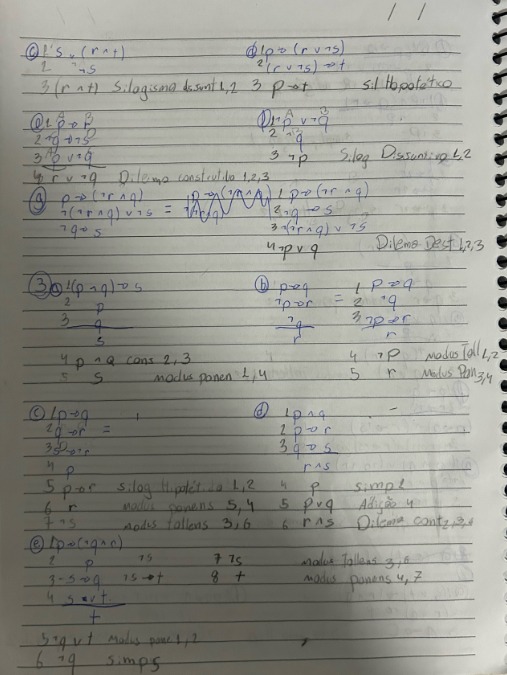 / /
ⓒ 1 ¬s ∨ (r∧t)
2 ¬¬s
3 (r∧t) Silogismo dissunt 1,2
ⓓ 1 p→(r∨¬s)
2 (r∨¬s)→t
3 p→t Sil Hipotético
ⓔ 1 p→r
2 ¬q→s
3 p∨¬q
4 r∨¬q Dilema construtido 1,2,3
ⓕ 1 ¬p∨¬q
2 ¬¬q
3 ¬p Silog Dissuntivo 1,2
ⓖ p→(¬r∧q)
¬(¬r∧q)∨¬s =
¬q→s
1 p→(¬r∧q)
2 ¬q→s
3 ¬(¬r∧q)∨¬s
4 ¬p∨q Dilema Dest 1,2,3
③ 1 (p∧q)→s
2 p
3 q
s
4 p∧q cons 2,3
5 s modus ponen 1,4
ⓑ p→q
¬p→r =
¬q
r
1 p→q
2 ¬q
3 ¬p→r
r
4 ¬p modus Toll 1,2
5 r modus Pon 3,4
ⓒ 1 p→q
2 q→r =
4 p
5 p→r silog Hipotético 1,2
6 r modus ponens 5,4
7 ¬s modus tollens 3,6
ⓓ 1 p∧q
2 p→r
3 q→s
r∧s
4 p simp 1
5 p∨q Adição 4
6 r∧s Dilema cont 2,3,
ⓔ 1 p→(¬q∧r)
2 p ¬s
3 ¬s→q ¬s→t
4 s∨t
t
5 ¬q∨t modus pone 1,2
6 ¬q simp 5
7 ¬s modus Tollens 3,6
8 t modus ponens 4,7